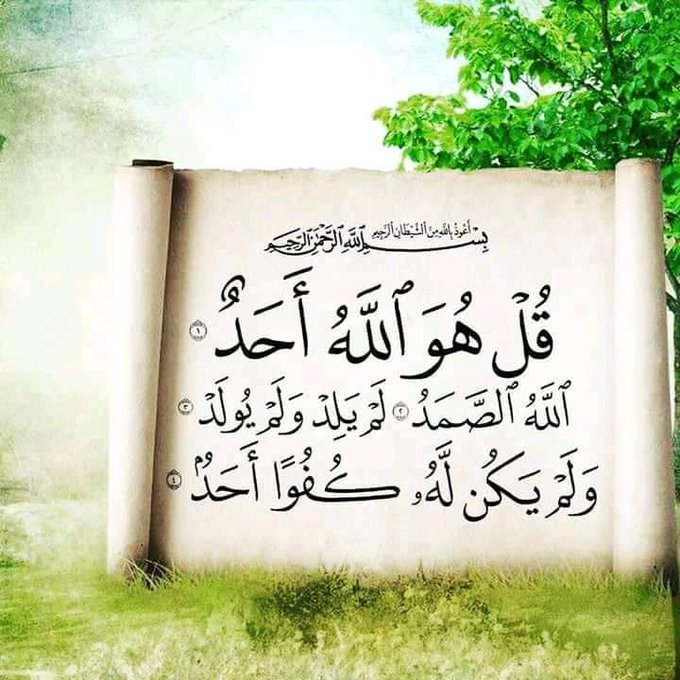 أَعُوذُ بِاللَّهِ مِنَ الشَّيْطَانِ الرَّجِيمِ
بِسْمِ ٱللَّهِ ٱلرَّحْمَٰنِ ٱلرَّحِيمِ
قُلْ هُوَ ٱللَّهُ أَحَدٌ ١
ٱللَّهُ ٱلصَّمَدُ ٢ لَمْ يَلِدْ وَلَمْ يُولَدْ ٣
وَلَمْ يَكُن لَّهُۥ كُفُوًا أَحَدٌۢ ٤